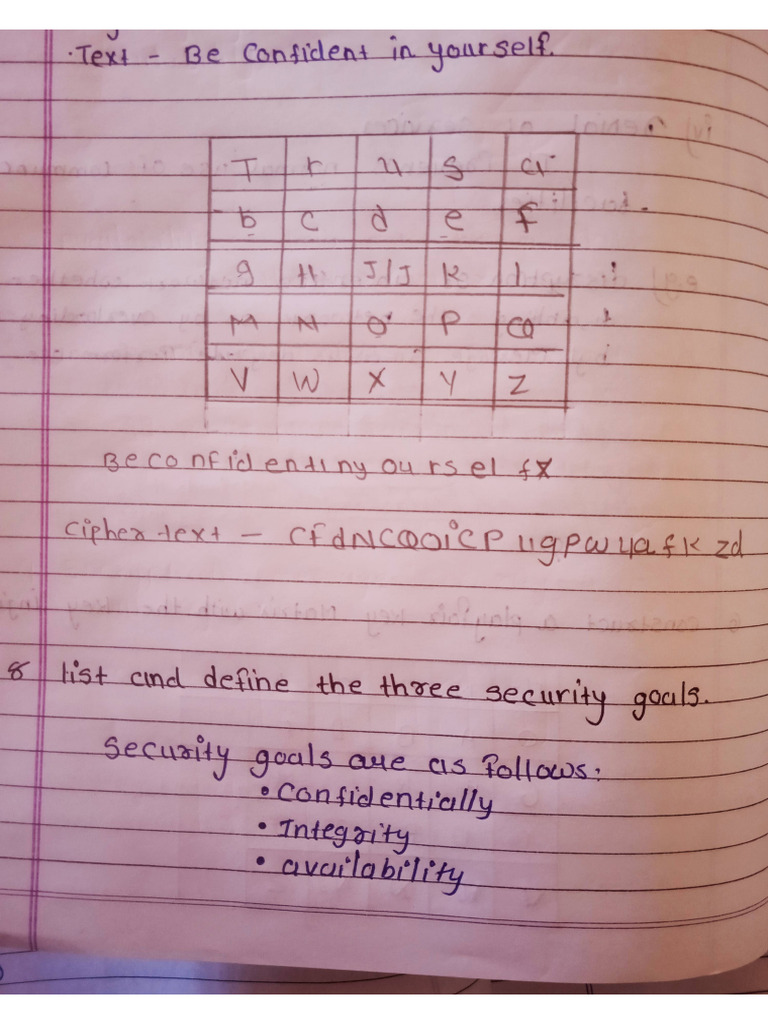 ·Text - Be Confident in yourself.
T r u s a
b c d e f
g H I/J K l
M N O P Q
V W X Y Z
Be co nf id en ti ny ou rs el fx
Cipher text -
8 list and define the three security goals.
Security goals are as follows:
• Confidentially
• Integrity
• availability